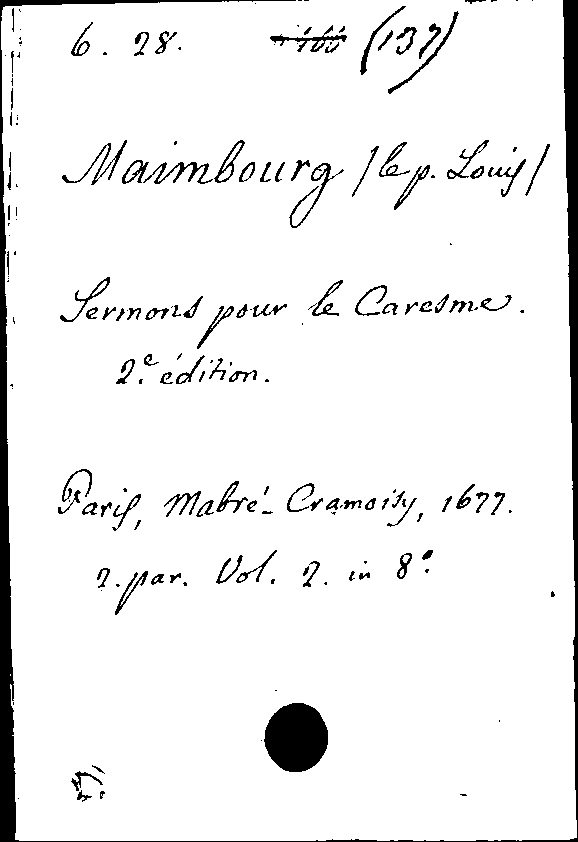 6. 28. (137)
Maimbourg /le p. Louis/
Sermons pour le Caresme.
2.e édition.
Paris, Mabré-Cramoisy, 1677.
2. par. Vol. 2. in 8°.